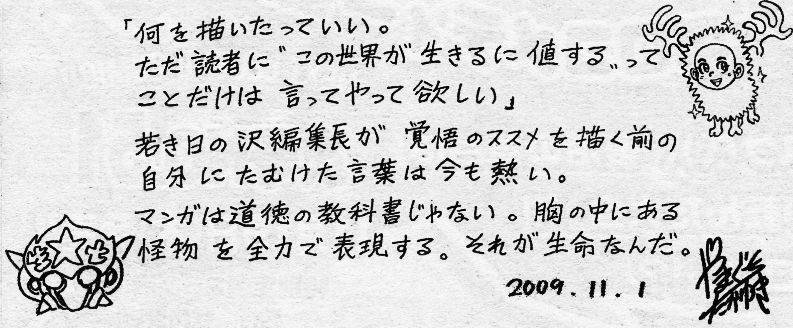 「何を描いたっていい。
ただ読者に〝この世界が生きるに値する〟って
ことだけは言ってやって欲しい」
若き日の沢編集長が覚悟のススメを描く前の
自分にたむけた言葉は今も熱い。
マンガは道徳の教科書じゃない。胸の中にある
怪物を全力で表現する。それが生命なんだ。
2009.11.1